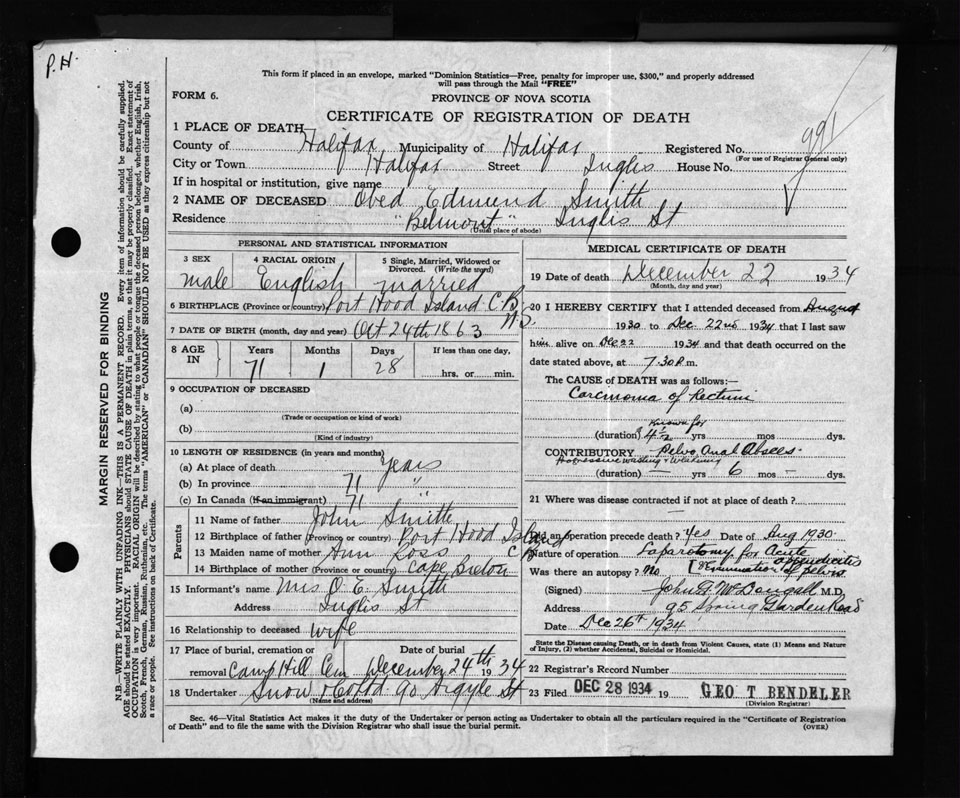 P.H.
This form if placed in an envelope, marked "Dominion Statistics—Free, penalty for improper use, $300," and properly addressed
will pass through the Mail "FREE"
FORM 6.
PROVINCE OF NOVA SCOTIA
CERTIFICATE OF REGISTRATION OF DEATH
991
1 PLACE OF DEATH
County of Halifax Municipality of Halifax Registered No.
(For use of Registrar General only)
City or Town Halifax Street Inglis House No.
If in hospital or institution, give name
2 NAME OF DECEASED Obed Edmund Smith
Residence "Belmont" Inglis St
(Usual place of abode)
PERSONAL AND STATISTICAL INFORMATION
3 SEX 4 RACIAL ORIGIN 5 Single, Married, Widowed or
Divorced. (Write the word)
male English married
6 BIRTHPLACE (Province or country) Port Hood Island C.B.
N.S.
7 DATE OF BIRTH (month, day and year) Oct 24th 1863
8 AGE IN Years Months Days If less than one day,
71 1 28 hrs. or min.
9 OCCUPATION OF DECEASED
(a)
(Trade or occupation or kind of work)
(b)
(Kind of industry)
10 LENGTH OF RESIDENCE (in years and months)
(a) At place of death years
(b) In province 71 "
(c) In Canada (if an immigrant) 71 "
Parents
11 Name of father John Smith
12 Birthplace of father (Province or country) Port Hood Island
13 Maiden name of mother Ann Ross C B
14 Birthplace of mother (Province or country) Cape Breton
15 Informant's name Mrs O. E. Smith
Address Inglis St
16 Relationship to deceased wife
17 Place of burial, cremation or Date of burial
removal Camp Hill Cem December 24th 1934
18 Undertaker Snow & Co Ltd 90 Argyle St
(Name and address)
MEDICAL CERTIFICATE OF DEATH
19 Date of death December 22 1934
(Month, day and year)
20 I HEREBY CERTIFY that I attended deceased from August
1930 to Dec 22nd 1934 that I last saw
him alive on Dec 22 1934 and that death occurred on
date stated above, at 7.30 P.m.
The CAUSE of DEATH was as follows:—
Carcinoma of Rectum
known for
(duration) 4½ yrs mos dys.
CONTRIBUTORY Pelvo Anal Abscess.
Progressive wasting & weakening
(duration) – yrs 6 mos – dys.
21 Where was disease contracted if not at place of death?
Did an operation precede death? yes Date of Aug 1930
Nature of operation Laparotomy for acute
appendicitis
Was there an autopsy? No & Evacuation of pelvis
(Signed) John G McDougall M.D.
Address 95 Spring Garden Road
Date Dec 26th 1934
State the Disease causing Death, or in death from Violent Causes, state (1) Means and Nature
of Injury, (2) whether Accidental, Suicidal or Homicidal.
22 Registrar's Record Number
23 Filed DEC 28 1934 19 GEO T BENDELER
(Division Registrar)
Sec. 46—Vital Statistics Act makes it the duty of the Undertaker or person acting as Undertaker to obtain all the particulars required in the "Certificate of Registration
of Death" and to file the same with the Division Registrar who shall issue the burial permit.
(OVER)
MARGIN RESERVED FOR BINDING
N.B.—WRITE PLAINLY WITH UNFADING INK—THIS IS A PERMANENT RECORD. Every item of information should be carefully supplied.
AGE should be stated EXACTLY. PHYSICIANS should STATE CAUSE OF DEATH in plain terms, so that it may be properly classified. Exact statement of
OCCUPATION is very important. RACIAL ORIGIN will be described by stating to what people or tongue the deceased person belonged, whether English, Irish,
Scotch, French, German, Russian, Ruthenian, etc. The terms "AMERICAN" or "CANADIAN" SHOULD NOT BE USED as they express citizenship but not
a race or people. See instructions on back of Certificate.